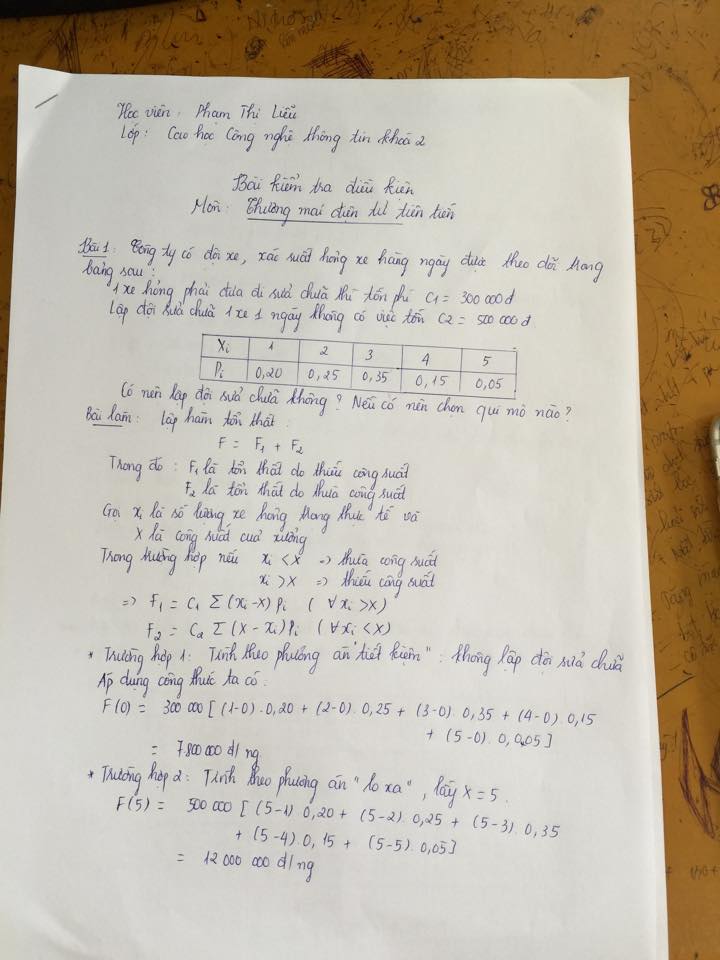 Học viên : Phạm Thị Liễu
Lớp : Cao học Công nghệ thông tin khoá 2
Bài kiểm tra điều kiện
Môn: Thương mại điện tử tiên tiến
Bài 1 : Công ty có đội xe, xác suất hỏng xe hàng ngày được theo dõi trong
bảng sau :
1 xe hỏng phải đưa đi sửa chữa thì tốn phí C1 = 300 000đ
Lập đội sửa chữa 1 xe 1 ngày không có việc tốn C2 = 500 000đ
Xi 1 2 3 4 5
Pi 0,20 0,25 0,35 0,15 0,05
Có nên lập đội sửa chữa không ? Nếu có nên chọn qui mô nào ?
Bài làm : Lập hàm tổn thất :
F = F1 + F2
Trong đó : F1 là tổn thất do thiếu công suất
F2 là tổn thất do thừa công suất
Gọi xi là số lượng xe hỏng trong thực tế và
X là công suất của xưởng
Trong trường hợp nếu xi < X => thừa công suất
xi > X => thiếu công suất
=> F1 = C1 Σ (xi - X) Pi ( ∀ xi > X)
F2 = C2 Σ (X - xi) Pi ( ∀ xi < X)
* Trường hợp 1 : Tính theo phương án "tiết kiệm" : không lập đội sửa chữa
Áp dụng công thức ta có :
F(0) = 300 000 [ (1-0) . 0,20 + (2-0) . 0,25 + (3-0) . 0,35 + (4-0) . 0,15
+ (5-0) . 0,05 ]
= 7800 000 đ/ ng
* Trường hợp 2 : Tính theo phương án " lo xa" , lấy X = 5 .
F(5) = 500 000 [ (5-1) 0,20 + (5-2) . 0,25 + (5-3) . 0,35
+ (5-4) . 0,15 + (5-5) . 0,05 ]
= 12 000 000 đ/ ng